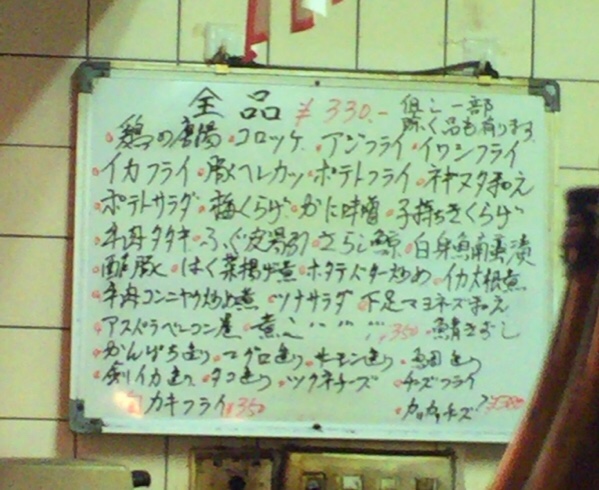 全品 ¥330.- 但し一部
除く品も有ります
鶏の唐揚 コロッケ アジフライ イワシフライ
イカフライ 豚ヘレカツ ポテトフライ ネギヌタ和え
ポテトサラダ 梅くらげ かに味噌 子持ちきくらげ
牛肉タタキ ふぐ皮湯引 さらし鯨 白身魚南蛮漬
酢豚 はく菜揚げ煮 ホタテバター炒め イカ大根煮
牛肉コンニャク炒め煮 ツナサラダ 下足マヨネーズ和え
アスパラベーコン 350 鯖きずし
かんぱち造り マグロ造り サーモン造り 造り
剣イカ造り タコ造り ツクネチーズ チーズフライ
カキフライ ¥350 チーズ